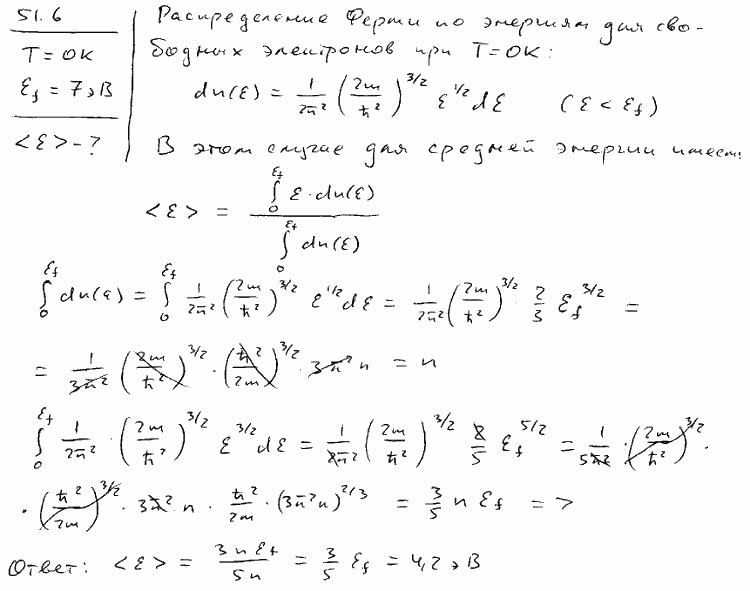 51.6
T = 0K
Ɛf = 7 эВ
<Ɛ> - ?
Распределение Ферми по энергиям для сво-
бодных электронов при T = 0K:
dn(Ɛ) = 1/2π² (2m/ħ²)^3/2 Ɛ^1/2 dƐ (Ɛ < Ɛf)
В этом случае для средней энергии имеем:
<Ɛ> = ∫₀^Ɛf Ɛ·dn(Ɛ) / ∫₀^Ɛf dn(Ɛ)
∫₀^Ɛf dn(Ɛ) = ∫₀^Ɛf 1/2π² (2m/ħ²)^3/2 Ɛ^1/2 dƐ = 1/2π² (2m/ħ²)^3/2 · 2/3 Ɛf^3/2 =
= 1/3π² (2m/ħ²)^3/2 · (ħ²/2m)^3/2 · 3π²n = n
∫₀^Ɛf 1/2π² · (2m/ħ²)^3/2 Ɛ^3/2 dƐ = 1/2π² (2m/ħ²)^3/2 2/5 Ɛf^5/2 = 1/5π² · (2m/ħ²)^3/2 ·
· (ħ²/2m)^3/2 · 3π² n · ħ²/2m · (3π²n)^2/3 = 3/5 n Ɛf =>
Ответ: <Ɛ> = 3nƐf/5n = 3/5 Ɛf = 4,2 эВ